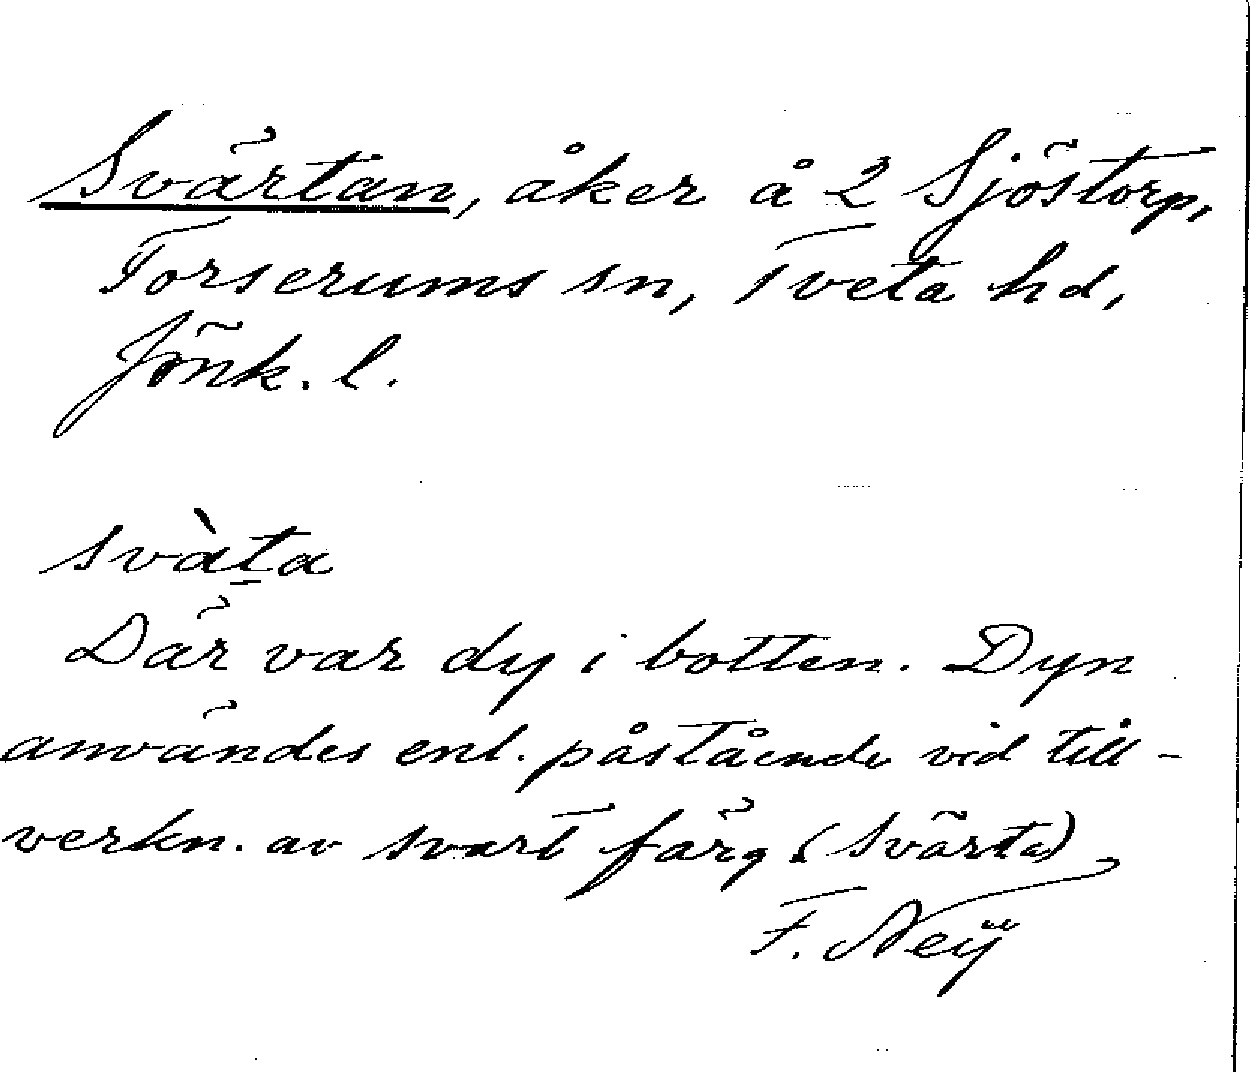 Svärtan, åker å 2 Sjöstorp,
Forserums sn, Tveta hd,
Jönk. l.
svàṯa
Där var dy i botten. Dyn
användes enl. påstående vid till-
verkn. av svart färg (svärta)
F. Neÿ